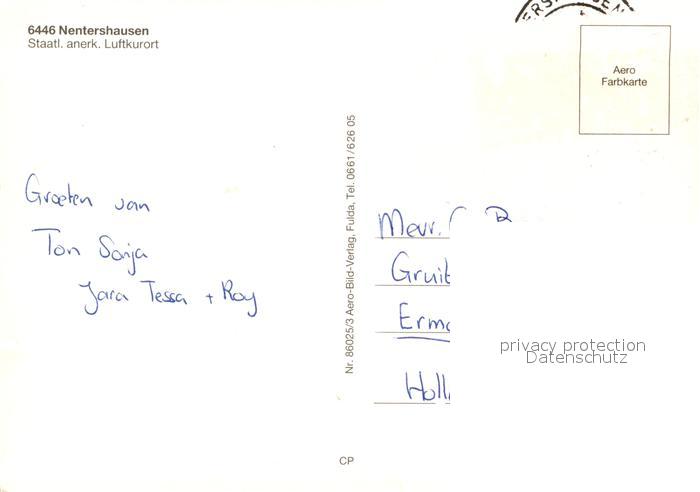 6446 Nentershausen
Staatl. anerk. Luftkurort
Aero
Farbkarte
Groeten van
Ton Sonja
Jara Tessa + Roy
Nr. 86025/3 Aero-Bild-Verlag, Fulda, Tel. 0661/626 05
Mevr.
Holl
privacy protection
Datenschutz
CP